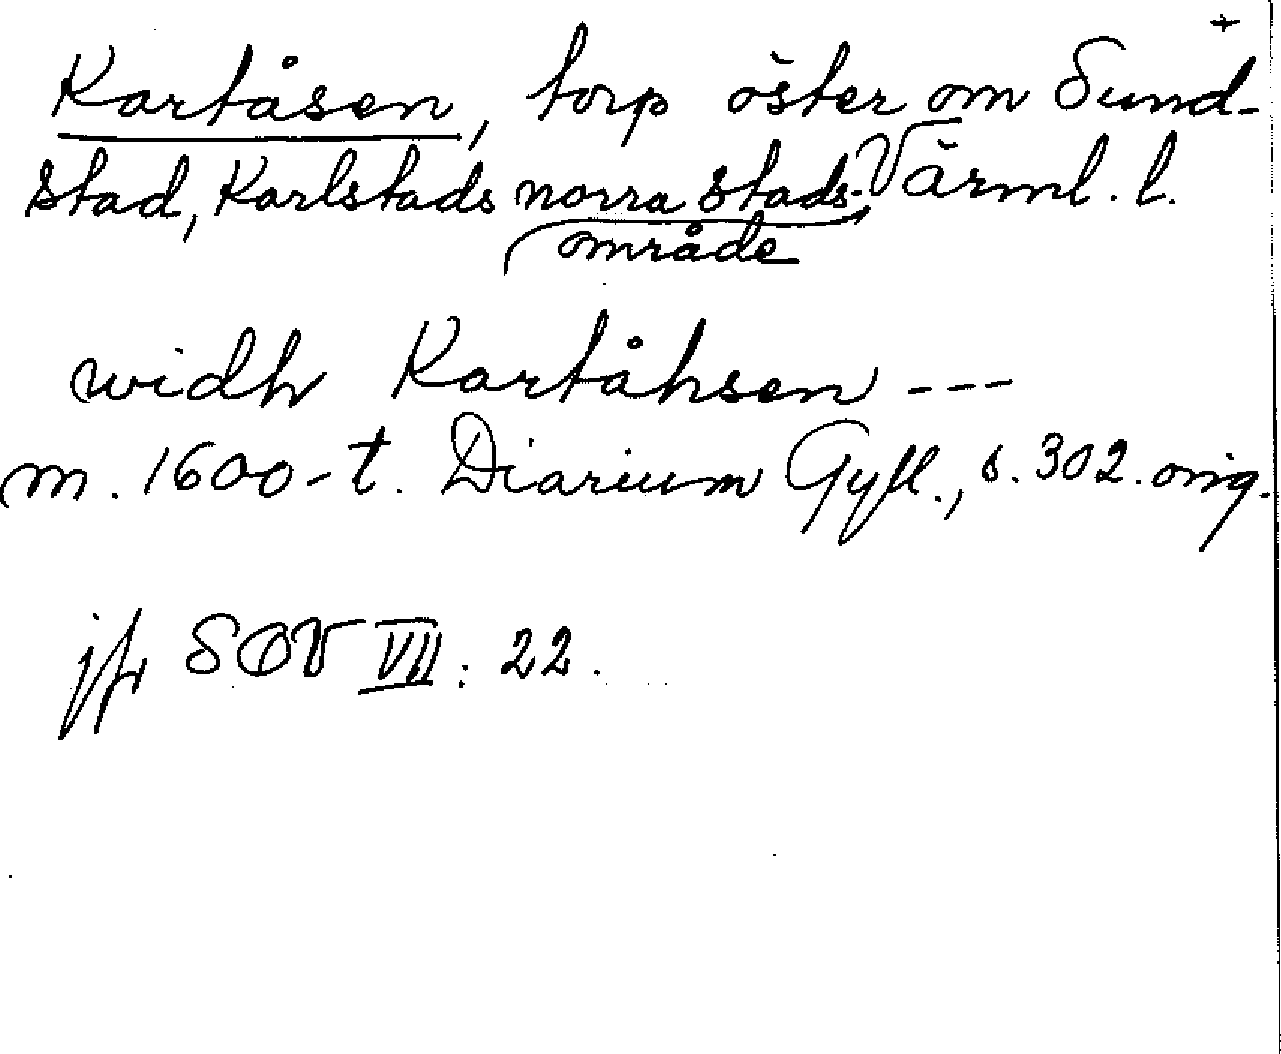 +
Kartåsen, torp öster om Sund-
stad, Karlstads norra stads- Värml. l.
område
widh Kartåhsen ---
m. 1600-t. Diarium Gyll., s. 302. orig.
jfr SOV VII: 22.